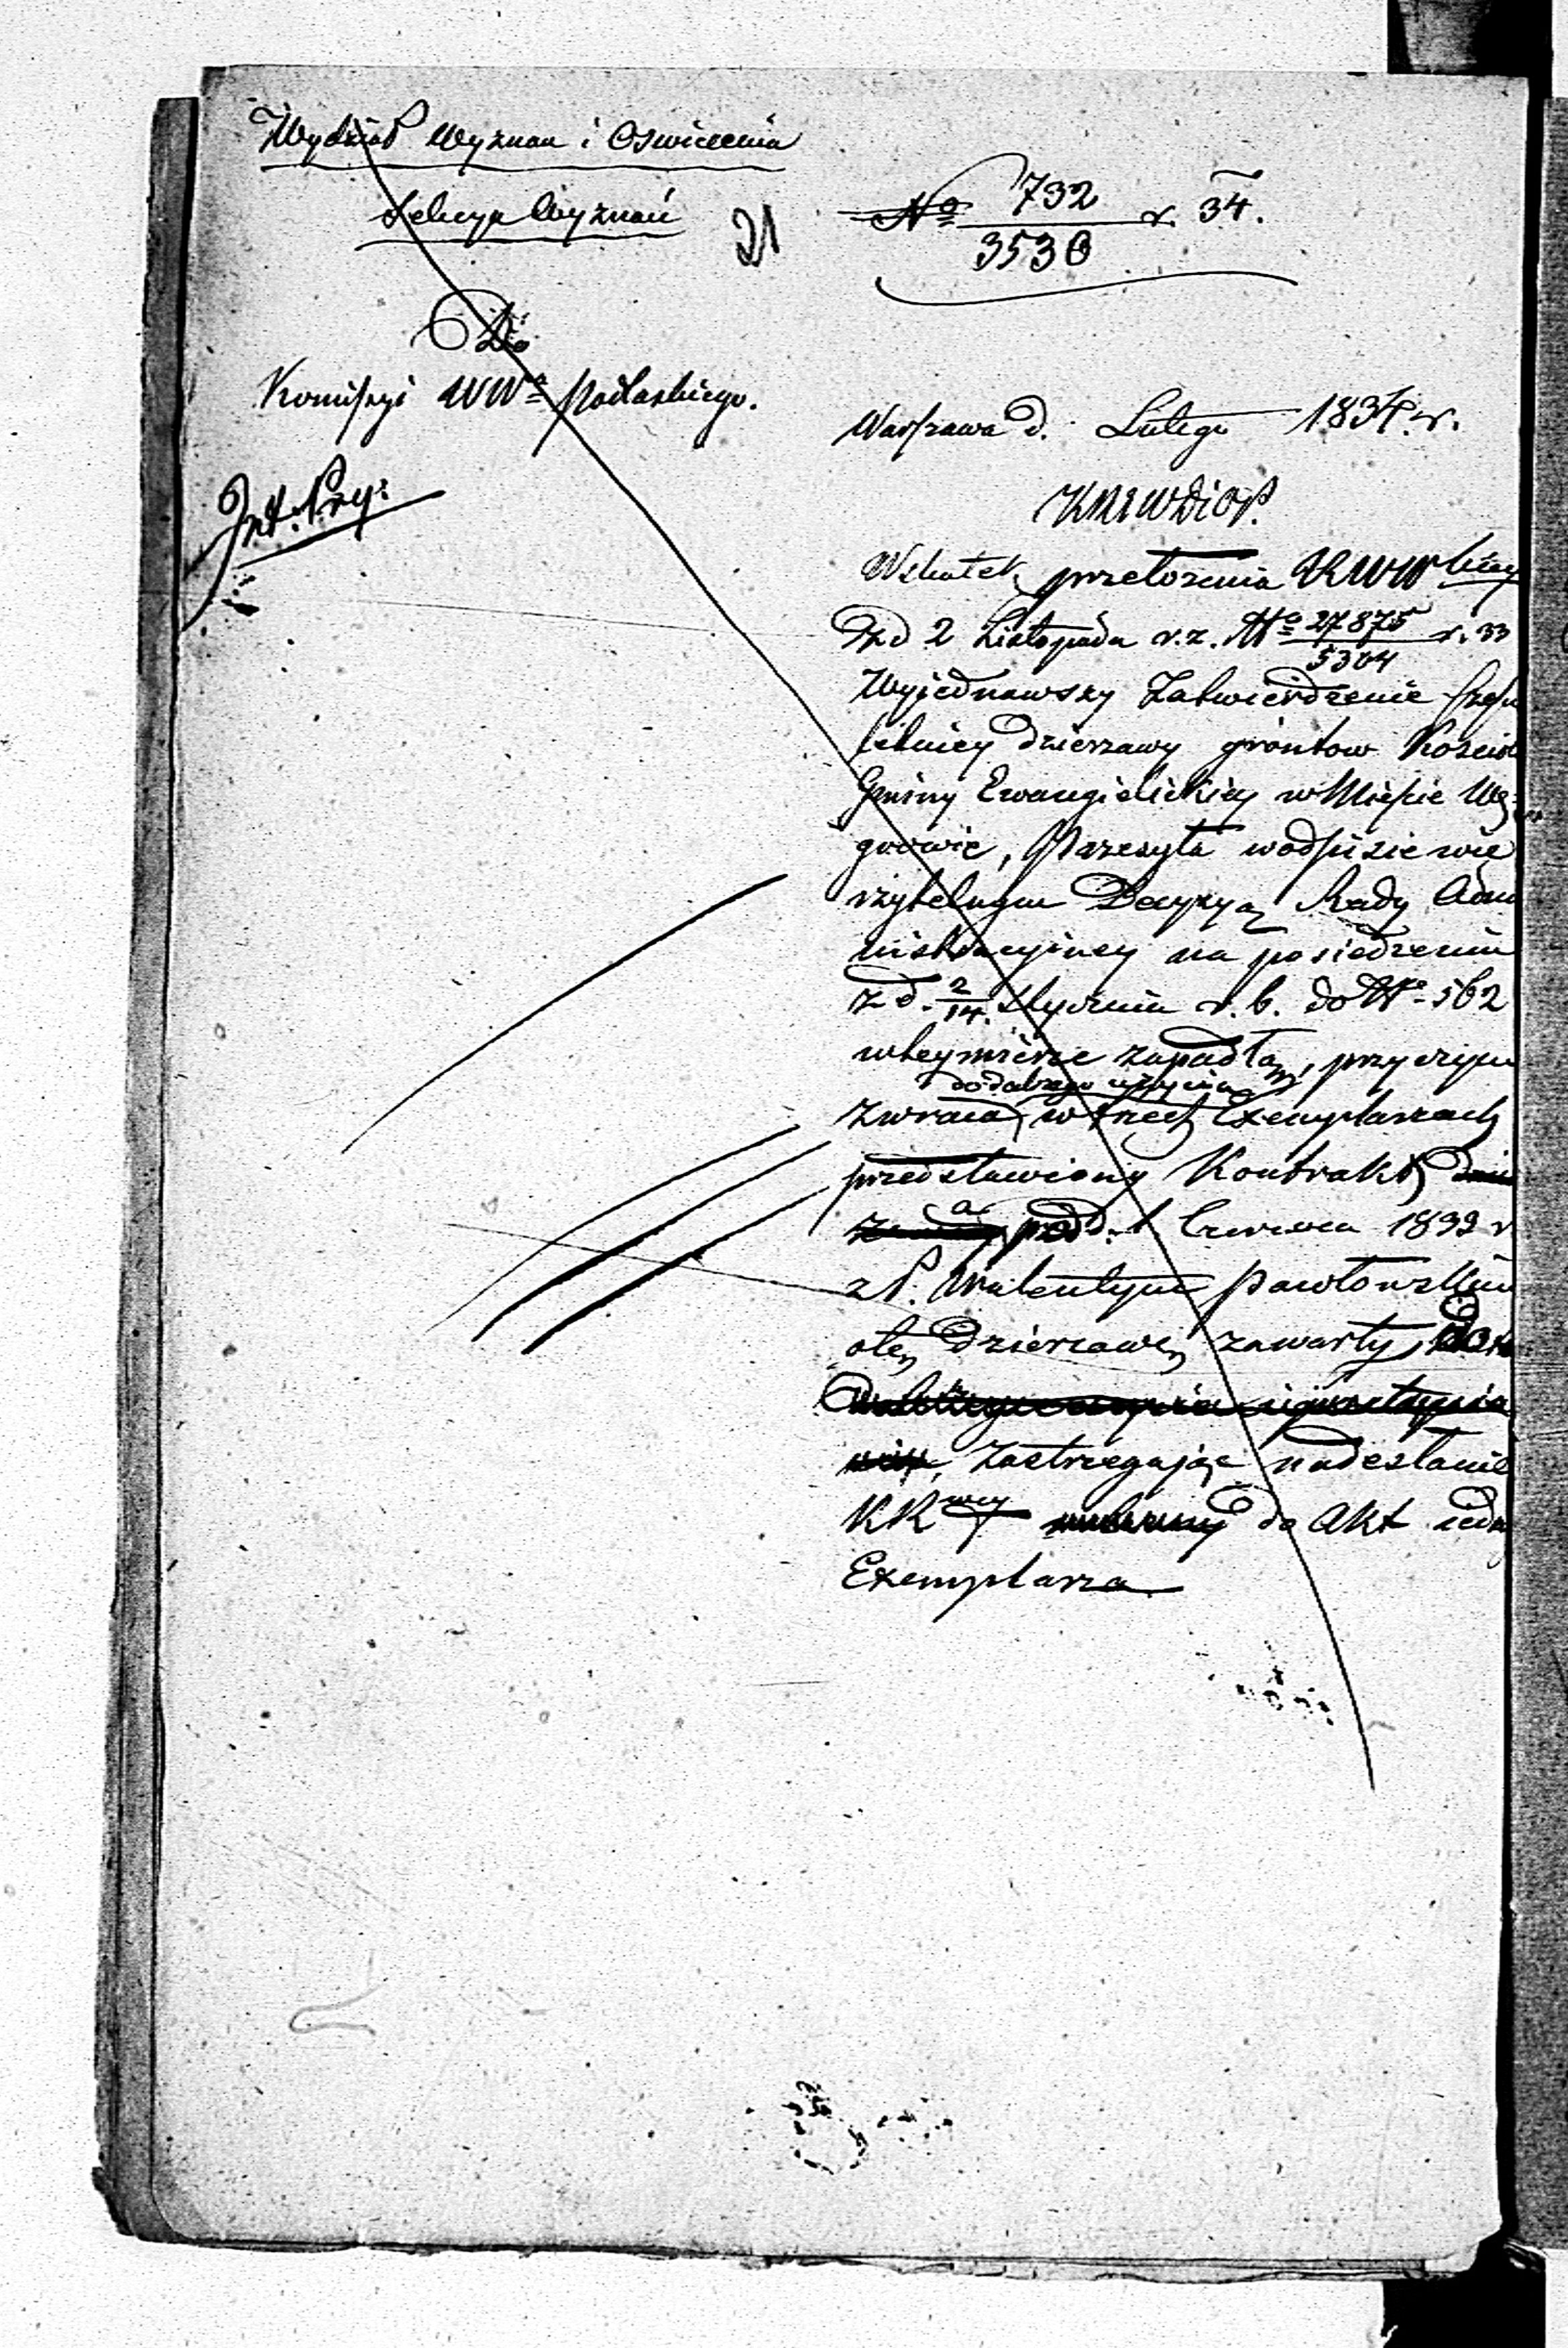 Wydział Wyznan i Oswiecenia
Sekcya Wyznań
21
No 732/3530 r. 34.
Do
Komissyi WWa Podlaskiego.
Warszawa d. Lutego 1834 r.
Int. Pry:
KRSWDiOP.
Wskutek przełozenia KWW
Z d 2 Listopada r. z. No 27875/5304 r. 33
Wyjednawszy Zatwierdzenie Szescio
letniey Dzierzawy gróntow Koscio
Gminy Ewangielickiey w Miescie Wę-
growie, Przesyła w odpisie wie
rzytelnym Decyzyą Rady Admi
nistracyiney na posiedzeniu
z d. 2/14. Stycznia r. b. do No 562
w tey mierze zapadłą, przyczym
do dalszego użycia
zwraca w trzech Exemplarzach
przedstawiony Kontrakt
pod d. 1 Czerwca 1833 r
z P. Walentym Pawłowskim
o tę Dzierzawę zawarty,
zastrzegając nadesłanie
KRwey do Akt iedn
Exemplarza